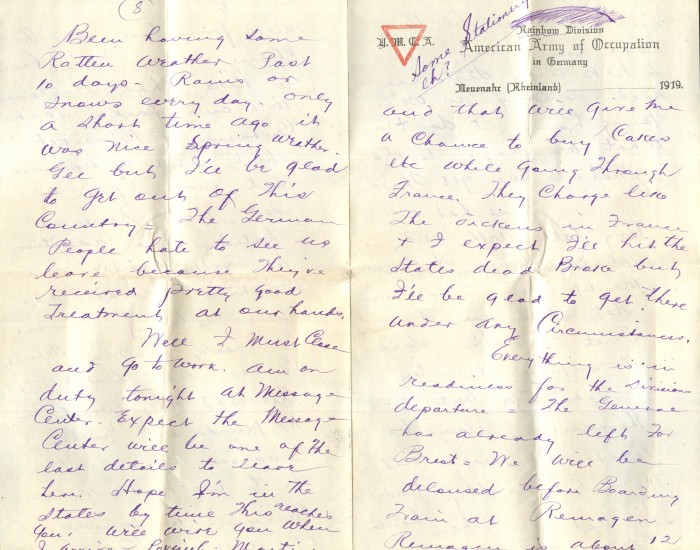 (8
Been having some
Rotten Weather Past
10 days - Rains or
snows every day. only
a short time ago it
was Nice Spring Weather.
Gee but I'll be glad
to get out of This
Country = The German
People hate to see us
leave because They've
received pretty good
Treatment at our hands.
Well I must Close
and go to work. am on
duty tonight at Message
Center. Expect the Message
Center will be one of the
last details to leave
here. Hope I'm in the
States by time This reaches
you. Will wire you when
I arrive -
Some Stationery
eh?
Y.M.C.A.
Rainbow Division
American Army of Occupation
in Germany
Neuenahr (Rheinland) 1919.
and that will give me
a chance to buy Cakes
etc while going Through
France. They Charge like
The Dickens in France
+ I expect I'll hit the
States dead Broke but
I'll be glad to get there
under any Circumstances.
Everything is in
readiness for the Divisions
departure = The General
has already left For
Brest = We will be
deloused before Boarding
Train at Remagen.
Remagen is about 12